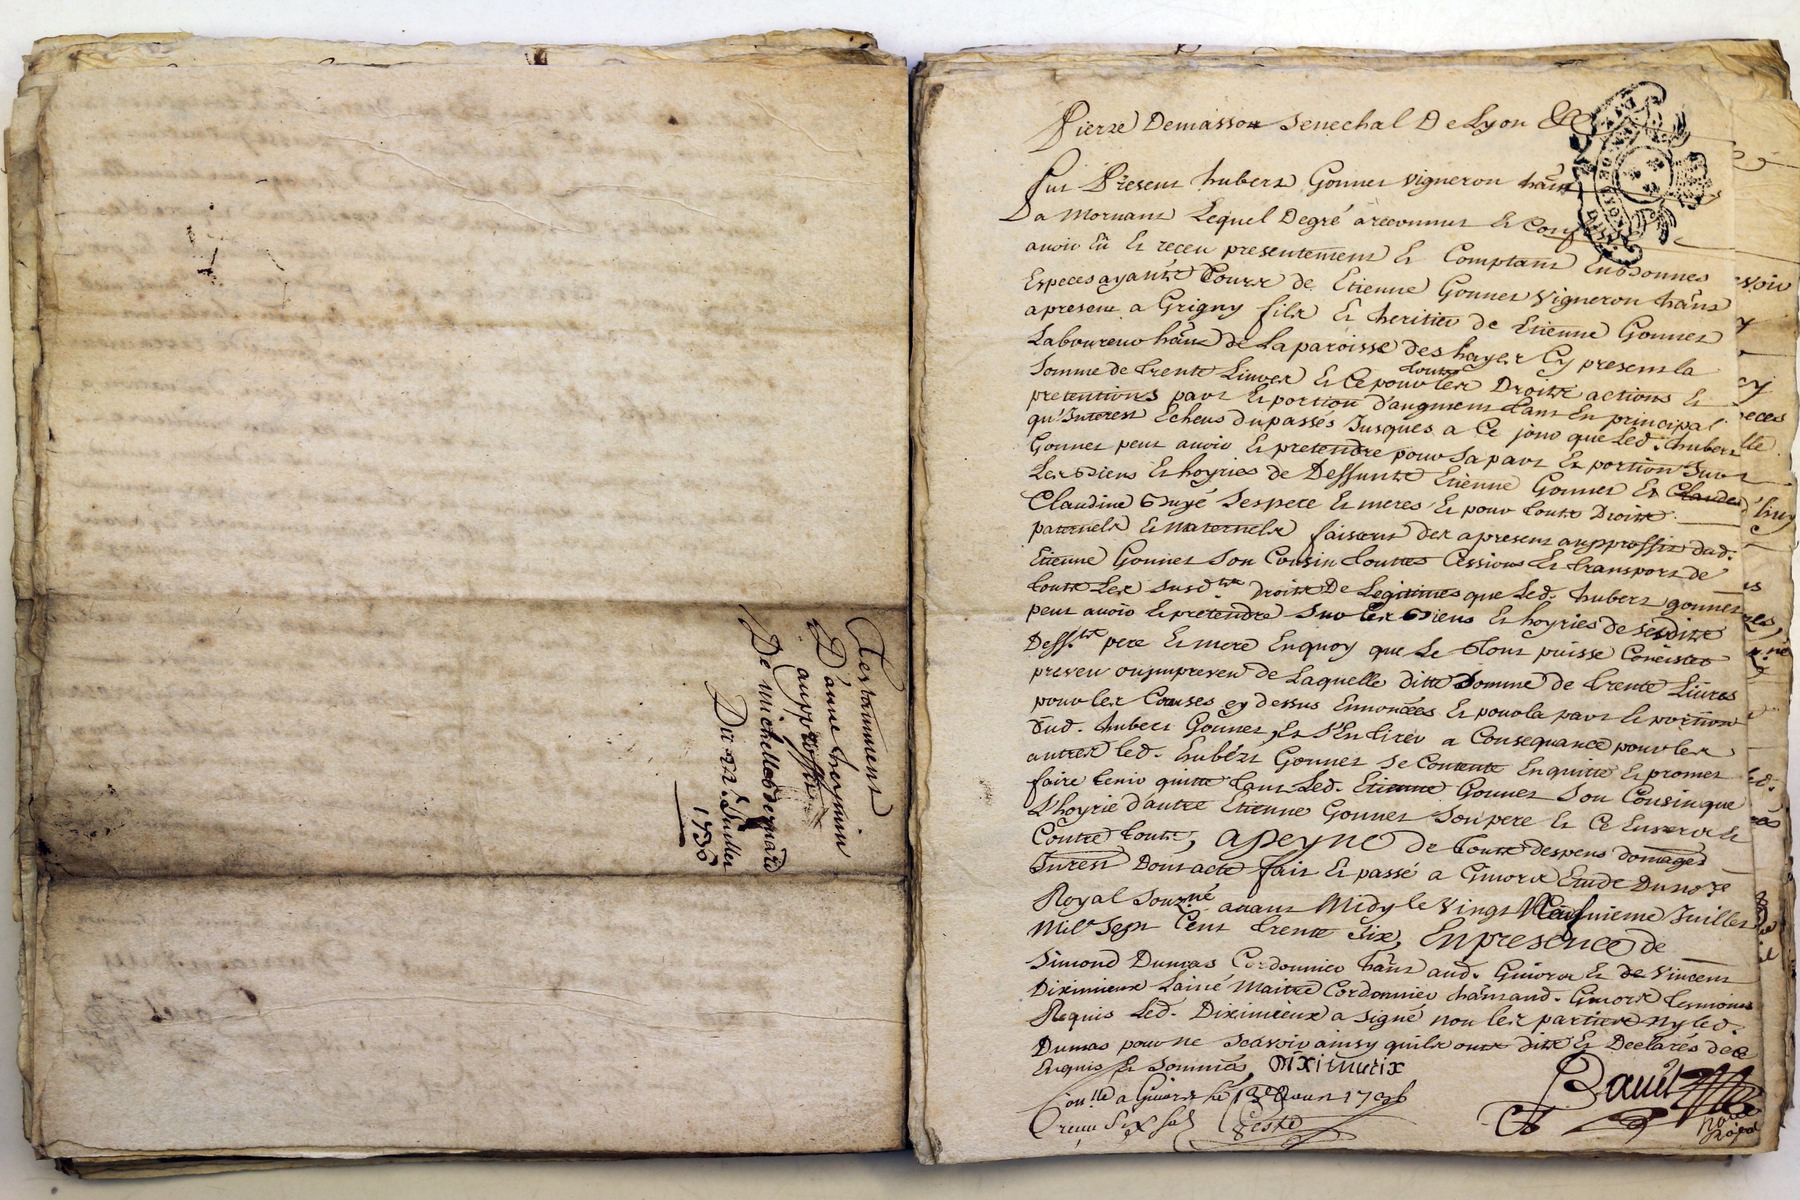 Testamment
D'anne hermnin
aupproffit
De michelle bequard
Du 22.e Juillet
1736
Pierre Demasson Senechal De Lyon &c
fut Present hubert Gonnet vigneron hãnt
Da Mornant Lequel Degré a reconnut et Conf
avoir Eû et receu presentement et Comptant En bonnes
Especes ayantte Cours de Etienne Gonnet vigneron hãnt
apresent a Grigny fils et heritier de Etienne Gonnet
Laboureur hãnt de La paroisse des hayes Cy present la
Somme de trente Livres et Ce pour touts les Droits actions et
pretentions part et portion d'augment tant En principal
qu'Interest Echeus du passés Jusques a Ce jour que Led. hubert
Gonnet peut avoir et pretendre pour Sa part et portion Sur
Les biens et hoyries de Deffunts Etienne Gonnet et Claude
Claudine Guyé Ses pere et meres et pour touts Droits
paternels et Maternels faisant des apresent aupproffit dud.
Etienne Gonnet Son Cousin touttes Cessions et transport de
touts Les susd.ts droits De Legitimes que Led. hubert gonnet
peut avoir et pretendre Sur les biens et hoyries de sesdits
Deff.ts pere et mere En quoy que Le tout puisse Concister
preveu ou jmpreveu de Laquelle ditte Somme de trente Livres
pour les Causes cy dessus Ennoncées et pour la part et portion
dud. hubert Gonnet, et S'En tirer a Consequance pour les
autres led. hubert Gonnet Se Contente En quitte et promet
faire tenir quitte tant Led. Etienne Gonnet Son Cousin que
L'hoyrie d'autre Etienne Gonnet Son pere et Ce Envers et
Contre touts, apeyne de touts despens domages
Jnrest Dont acte fait et passé a Givors Etude Du no.re
Royal Souz.né avant Midy le Vingt Neufuieme Juillet
Mil Sept Cent trente Six, En presence de
Simond Dumas Cordonnier hãnt aud. Givors et de Vincent
Diximieux Lainé Maitre Cordonnier hãnt aud. Givors tesmoins
Requis Led. Diximieux a Signé non les parties ny Led.
Dumas pour ne Scavoir ainsy quils ont ditts et Declarés de ce
Enquis et Sommés, DiXimieix
Con.llé a Givors le 13e Aoust 1736
reçu Six sols
Bavet
no.re
Royal